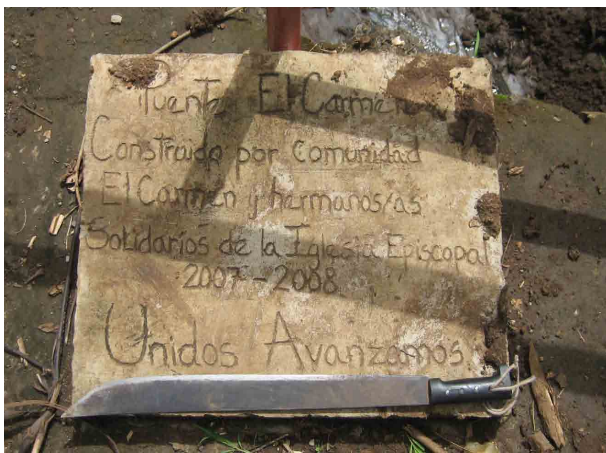 Puente El Carmen
Construido por Comunidad
El Carmen y hermanos/as
Solidarios de la Iglesia Episcopal
2007-2008
Unidos Avanzamos